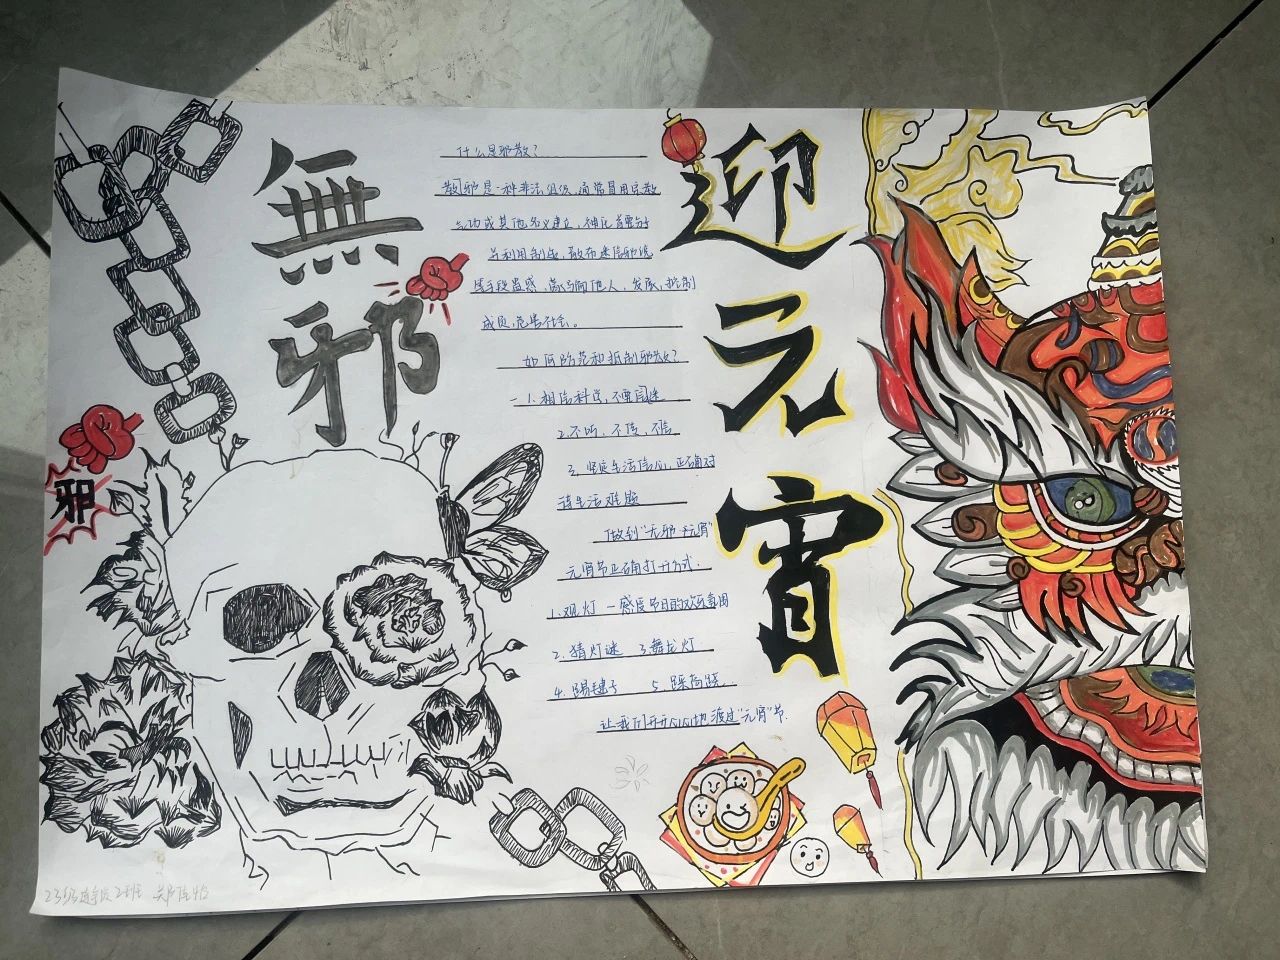 無邪
邪
什么是邪教?
教邪是一种非法组织,通常冒用宗教
气功或其他名义建立,神化首要分
子利用制造,散布迷信邪说
等手段蛊惑、蒙骗他人,发展,控制
成员,危害社会。
如何防范和抵制邪教?
1.相信科学,不要同迷
2.不听、不传、不信
3、坚定生活信心,正确对
待生活难题
做到"无邪 元宵"
元宵节正确打开方式.
1.观灯 一感受节日的欢乐氛围
2.猜灯迷 3.舞龙灯
4.踢毽子 5.踩高跷
让我们开开心心地渡过"元宵"节.
迎元宵
23级 2班